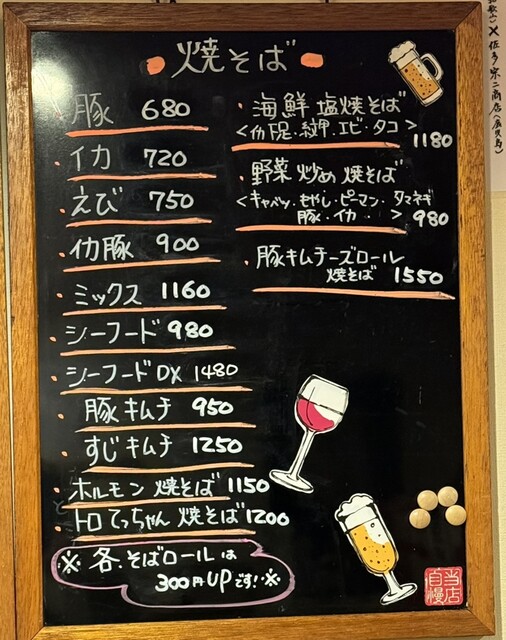 焼そば
・豚 680
・イカ 720
・えび 750
・イカ豚 900
・ミックス 1160
・シーフード 980
・シーフードDX 1480
・豚キムチ 950
・すじキムチ 1250
・ホルモン焼そば 1150
・トロてっちゃん焼そば 1200
※各.そばロールは
300円UPです!※
・海鮮塩焼そば
<イカ下足・紋甲・エビ・タコ>
1180
・野菜炒め焼そば
<キャベツ・もやし・ピーマン・タマネギ
豚・イカ・> 980
・豚キムチーズロール
焼そば 1550
当店
自慢
×佐多宗二商店